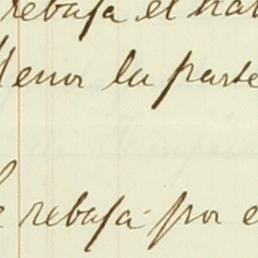 rebaja el ha
Menor la parte
se rebaja por e